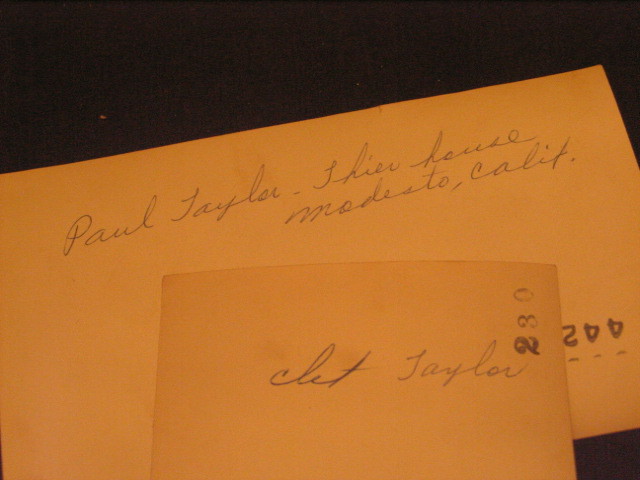 Paul Taylor - Thier house
Modesto, Calif.
442
230
Chet Taylor